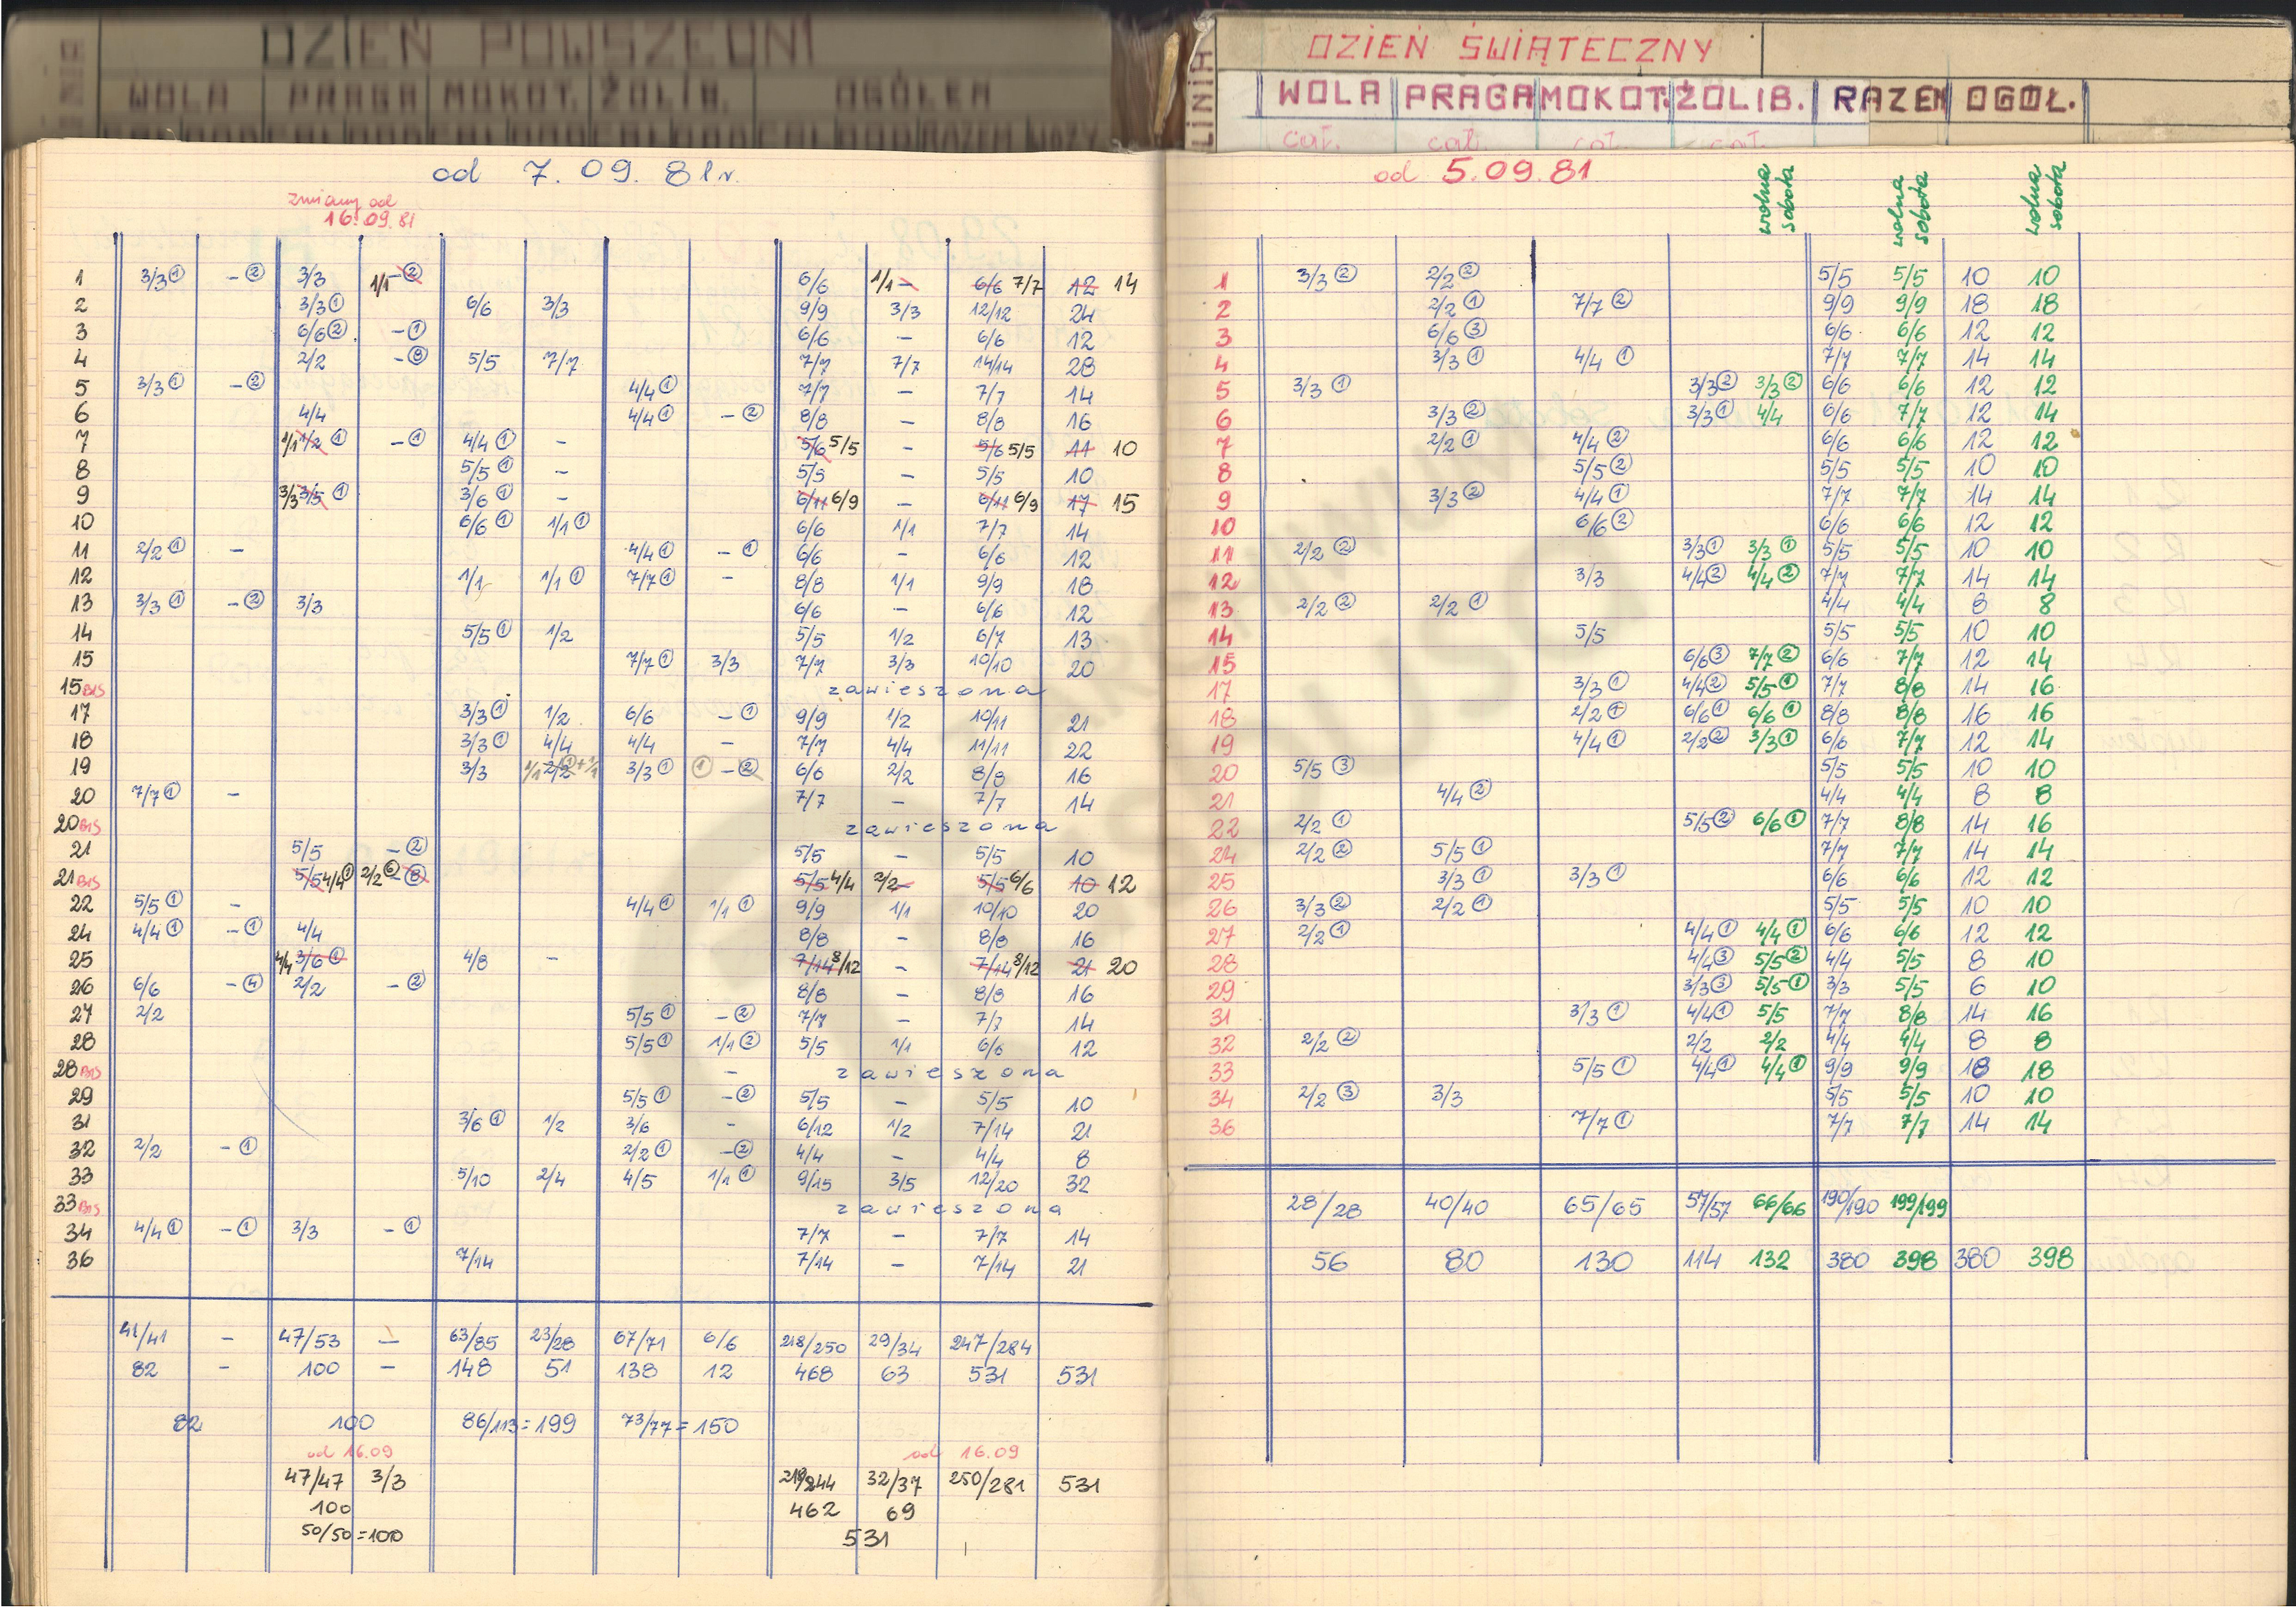 DZIEŃ POWSZEDNI
WOLA PRAGA MOKOT. ŻOLIB. OGÓŁEM
od 7.09.81r.
zmiany od
16.09.81
1 3/3① -② 3/3 1/1 -② 6/6 1/1 - 6/6 7/7 12 14
2 3/3① 6/6 3/3 9/9 3/3 12/12 24
3 6/6② -① 6/6 - 6/6 12
4 2/2 -③ 5/5 7/7 7/7 7/7 14/14 28
5 3/3① -② 4/4① 7/7 - 7/7 14
6 4/4 4/4① -② 8/8 - 8/8 16
7 1/1 1/2① -① 4/4① - 5/6 5/5 - 5/6 5/5 11 10
8 5/5① - 5/5 - 5/5 10
9 3/3 3/5① 3/6① - 6/11 6/9 - 6/11 6/9 17 15
10 6/6① 1/1① 6/6 1/1 7/7 14
11 2/2① - 4/4① -① 6/6 - 6/6 12
12 1/1 1/1① 7/7① - 8/8 1/1 9/9 18
13 3/3① -② 3/3 6/6 - 6/6 12
14 5/5① 1/2 5/5 1/2 6/7 13
15 7/7① 3/3 7/7 3/3 10/10 20
15BIS zawieszona
17 3/3① 1/2 6/6 -① 9/9 1/2 10/11 21
18 3/3① 4/4 4/4 - 7/7 4/4 11/11 22
19 3/3 1/1 2/2①+1/1 3/3① ① -② 6/6 2/2 8/8 16
20 7/7① - 7/7 - 7/7 14
20BIS zawieszona
21 5/5 -② 5/5 - 5/5 10
21BIS 5/5 4/4① 2/2⑥ -⑧ 5/5 4/4 2/2 - 5/5 6/6 10 12
22 5/5① - 4/4① 1/1① 9/9 1/1 10/10 20
24 4/4① -① 4/4 8/8 - 8/8 16
25 4/4 3/6① 4/8 - 7/14 8/12 - 7/14 8/12 21 20
26 6/6 -④ 2/2 -② 8/8 - 8/8 16
27 2/2 5/5① -② 7/7 - 7/7 14
28 5/5① 1/1② 5/5 1/1 6/6 12
28BIS - zawieszona
29 5/5① -② 5/5 - 5/5 10
31 3/6① 1/2 3/6 - 6/12 1/2 7/14 21
32 2/2 -① 2/2① -② 4/4 - 4/4 8
33 5/10 2/4 4/5 1/1① 9/15 3/5 12/20 32
33BIS zawieszona
34 4/4① -① 3/3 -① 7/7 - 7/7 14
36 7/14 7/14 - 7/14 21
41/41 - 47/53 - 63/85 23/28 67/71 6/6 218/250 29/34 247/284
82 - 100 - 148 51 138 12 468 63 531 531
82 100 86/113=199 73/77=150
od 16.09 od 16.09
47/47 3/3 219/244 32/37 250/281 531
100 462 69
50/50=100 531
LINIA DZIEŃ ŚWIĄTECZNY
WOLA PRAGA MOKOT. ŻOLIB. RAZEM OGÓŁ.
cał. cał. cał. cał.
od 5.09.81 wolna sobota wolna sobota wolna sobota
1 3/3② 2/2② 5/5 5/5 10 10
2 2/2① 7/7② 9/9 9/9 18 18
3 6/6③ 6/6 6/6 12 12
4 3/3① 4/4① 7/7 7/7 14 14
5 3/3① 3/3② 3/3② 6/6 6/6 12 12
6 3/3② 3/3① 4/4 6/6 7/7 12 14
7 2/2① 4/4② 6/6 6/6 12 12
8 5/5② 5/5 5/5 10 10
9 3/3② 4/4① 7/7 7/7 14 14
10 6/6② 6/6 6/6 12 12
11 2/2② 3/3① 3/3① 5/5 5/5 10 10
12 3/3 4/4② 4/4② 7/7 7/7 14 14
13 2/2② 2/2① 4/4 4/4 8 8
14 5/5 5/5 5/5 10 10
15 6/6③ 7/7② 6/6 7/7 12 14
17 3/3① 4/4② 5/5① 7/7 8/8 14 16
18 2/2① 6/6① 6/6① 8/8 8/8 16 16
19 4/4① 2/2② 3/3① 6/6 7/7 12 14
20 5/5③ 5/5 5/5 10 10
21 4/4② 4/4 4/4 8 8
22 2/2① 5/5② 6/6① 7/7 8/8 14 16
24 2/2② 5/5① 7/7 7/7 14 14
25 3/3① 3/3① 6/6 6/6 12 12
26 3/3② 2/2① 5/5 5/5 10 10
27 2/2① 4/4① 4/4① 6/6 6/6 12 12
28 4/4③ 5/5② 4/4 5/5 8 10
29 3/3③ 5/5① 3/3 5/5 6 10
31 3/3① 4/4① 5/5 7/7 8/8 14 16
32 2/2② 2/2 2/2 4/4 4/4 8 8
33 5/5① 4/4① 4/4① 9/9 9/9 18 18
34 2/2③ 3/3 5/5 5/5 10 10
36 7/7① 7/7 7/7 14 14
28/28 40/40 65/65 57/57 66/66 190/190 199/199
56 80 130 114 132 380 398 380 398